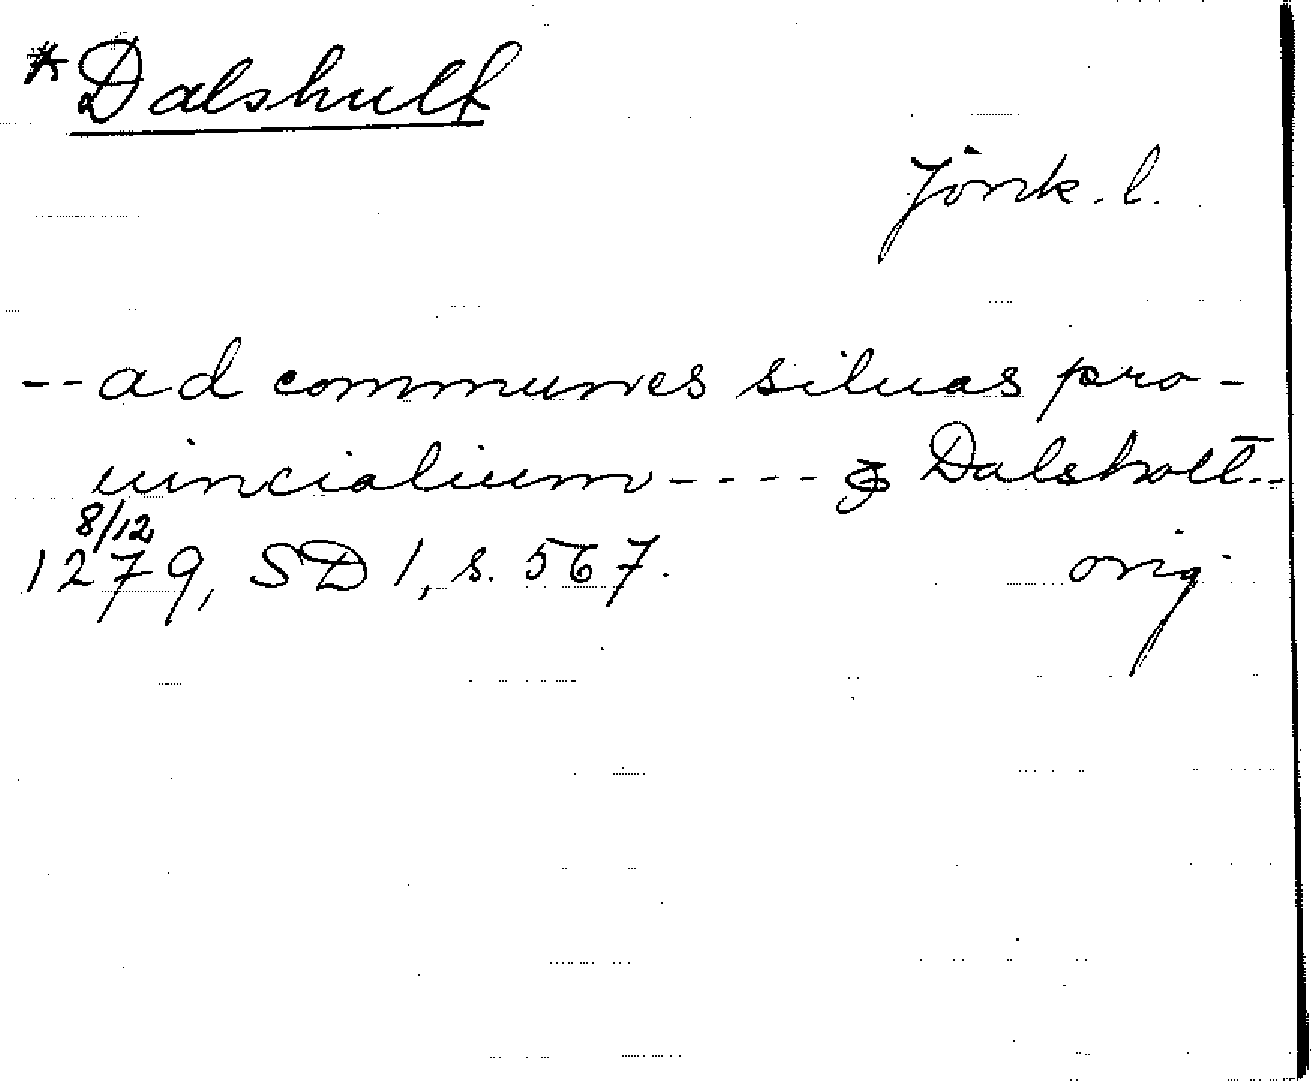 *Dalshult
Jönk. l.
-- ad communes siluas pro-
uincialium ---- & Dalsholt --
8/12
1279, SD 1, s. 567. orig.